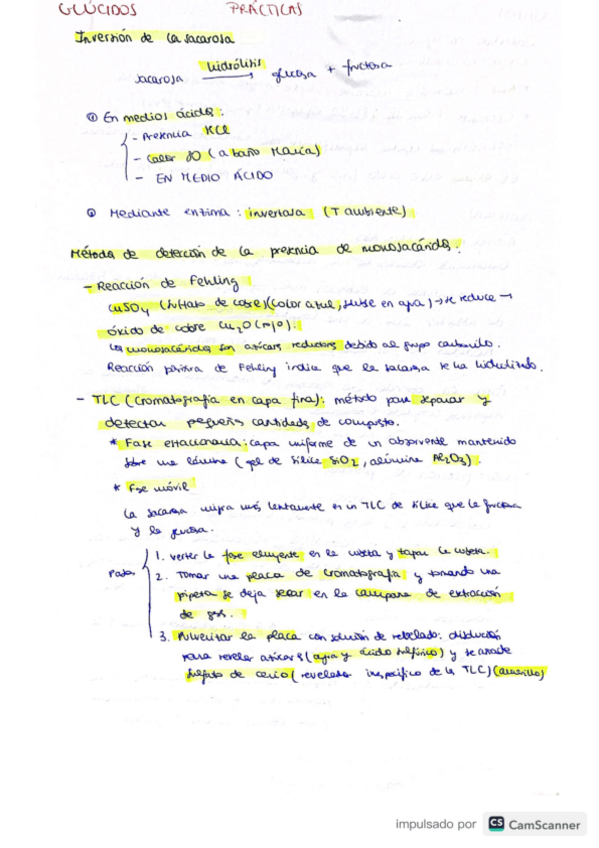 GLÚCIDOS PRÁCTICAS
Inversión de la sacarosa
sacarosa hidrólisis glucosa + fructosa
① En medios ácidos:
- Presencia HCl
- Calor (a baño María)
- EN MEDIO ÁCIDO
② Mediante enzima: invertasa (T ambiente)
Método de detección de la presencia de monosacáridos:
- Reacción de Fehling
CuSO4 (sulfato de cobre) (color azul, soluble en agua) → se reduce →
óxido de cobre Cu2O (rojo).
Los monosacáridos son azúcares reductores debido al grupo carbonilo.
Reacción positiva de Fehling indica que la sacarosa se ha hidrolizado.
- TLC (Cromatografía en capa fina): método para separar y
detectar pequeñas cantidades de compuesto.
* Fase estacionaria: capa uniforme de un absorvente mantenido
sobre una lámina (gel de sílice SiO2, alúmina Al2O3).
* Fase móvil
La sacarosa migra más lentamente en un TLC de sílice que la fructosa
y la glucosa.
Pasos
1. Verter la fase eluyente en la cubeta y tapar la cubeta.
2. Tomar una placa de cromatografía y tomando una
pipeta se deja secar en la campana de extracción
de gas.
3. Pulverizar la placa con solución de revelado: disolución
para revelar azúcares (agua y ácido sulfúrico) y se añade
sulfato de cerio (revelador inespecífico de la TLC) (amarillo)
impulsado por CS CamScanner